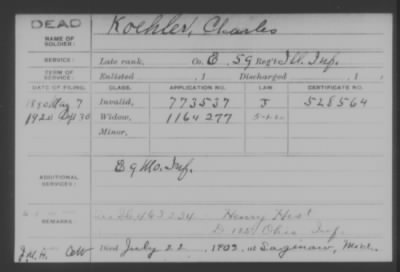 DEAD
Koehler, Charles
NAME OF SOLDIER:
SERVICE: Late rank, Co. E, 59 Reg't Ill. Inf.
TERM OF SERVICE: Enlisted , 1 Discharged , 1
DATE OF FILING. CLASS. APPLICATION NO. LAW. CERTIFICATE NO.
1890 Aug 7 Invalid, 773537 J 528564
1920 Sept 30 Widow, 1164277
Minor,
E 9 Mo. Inf.
ADDITIONAL SERVICES:
463234 Henry
REMARKS: D Ohio Inf.
J.M.H. Died July 22 1903, at Saginaw, Mich.